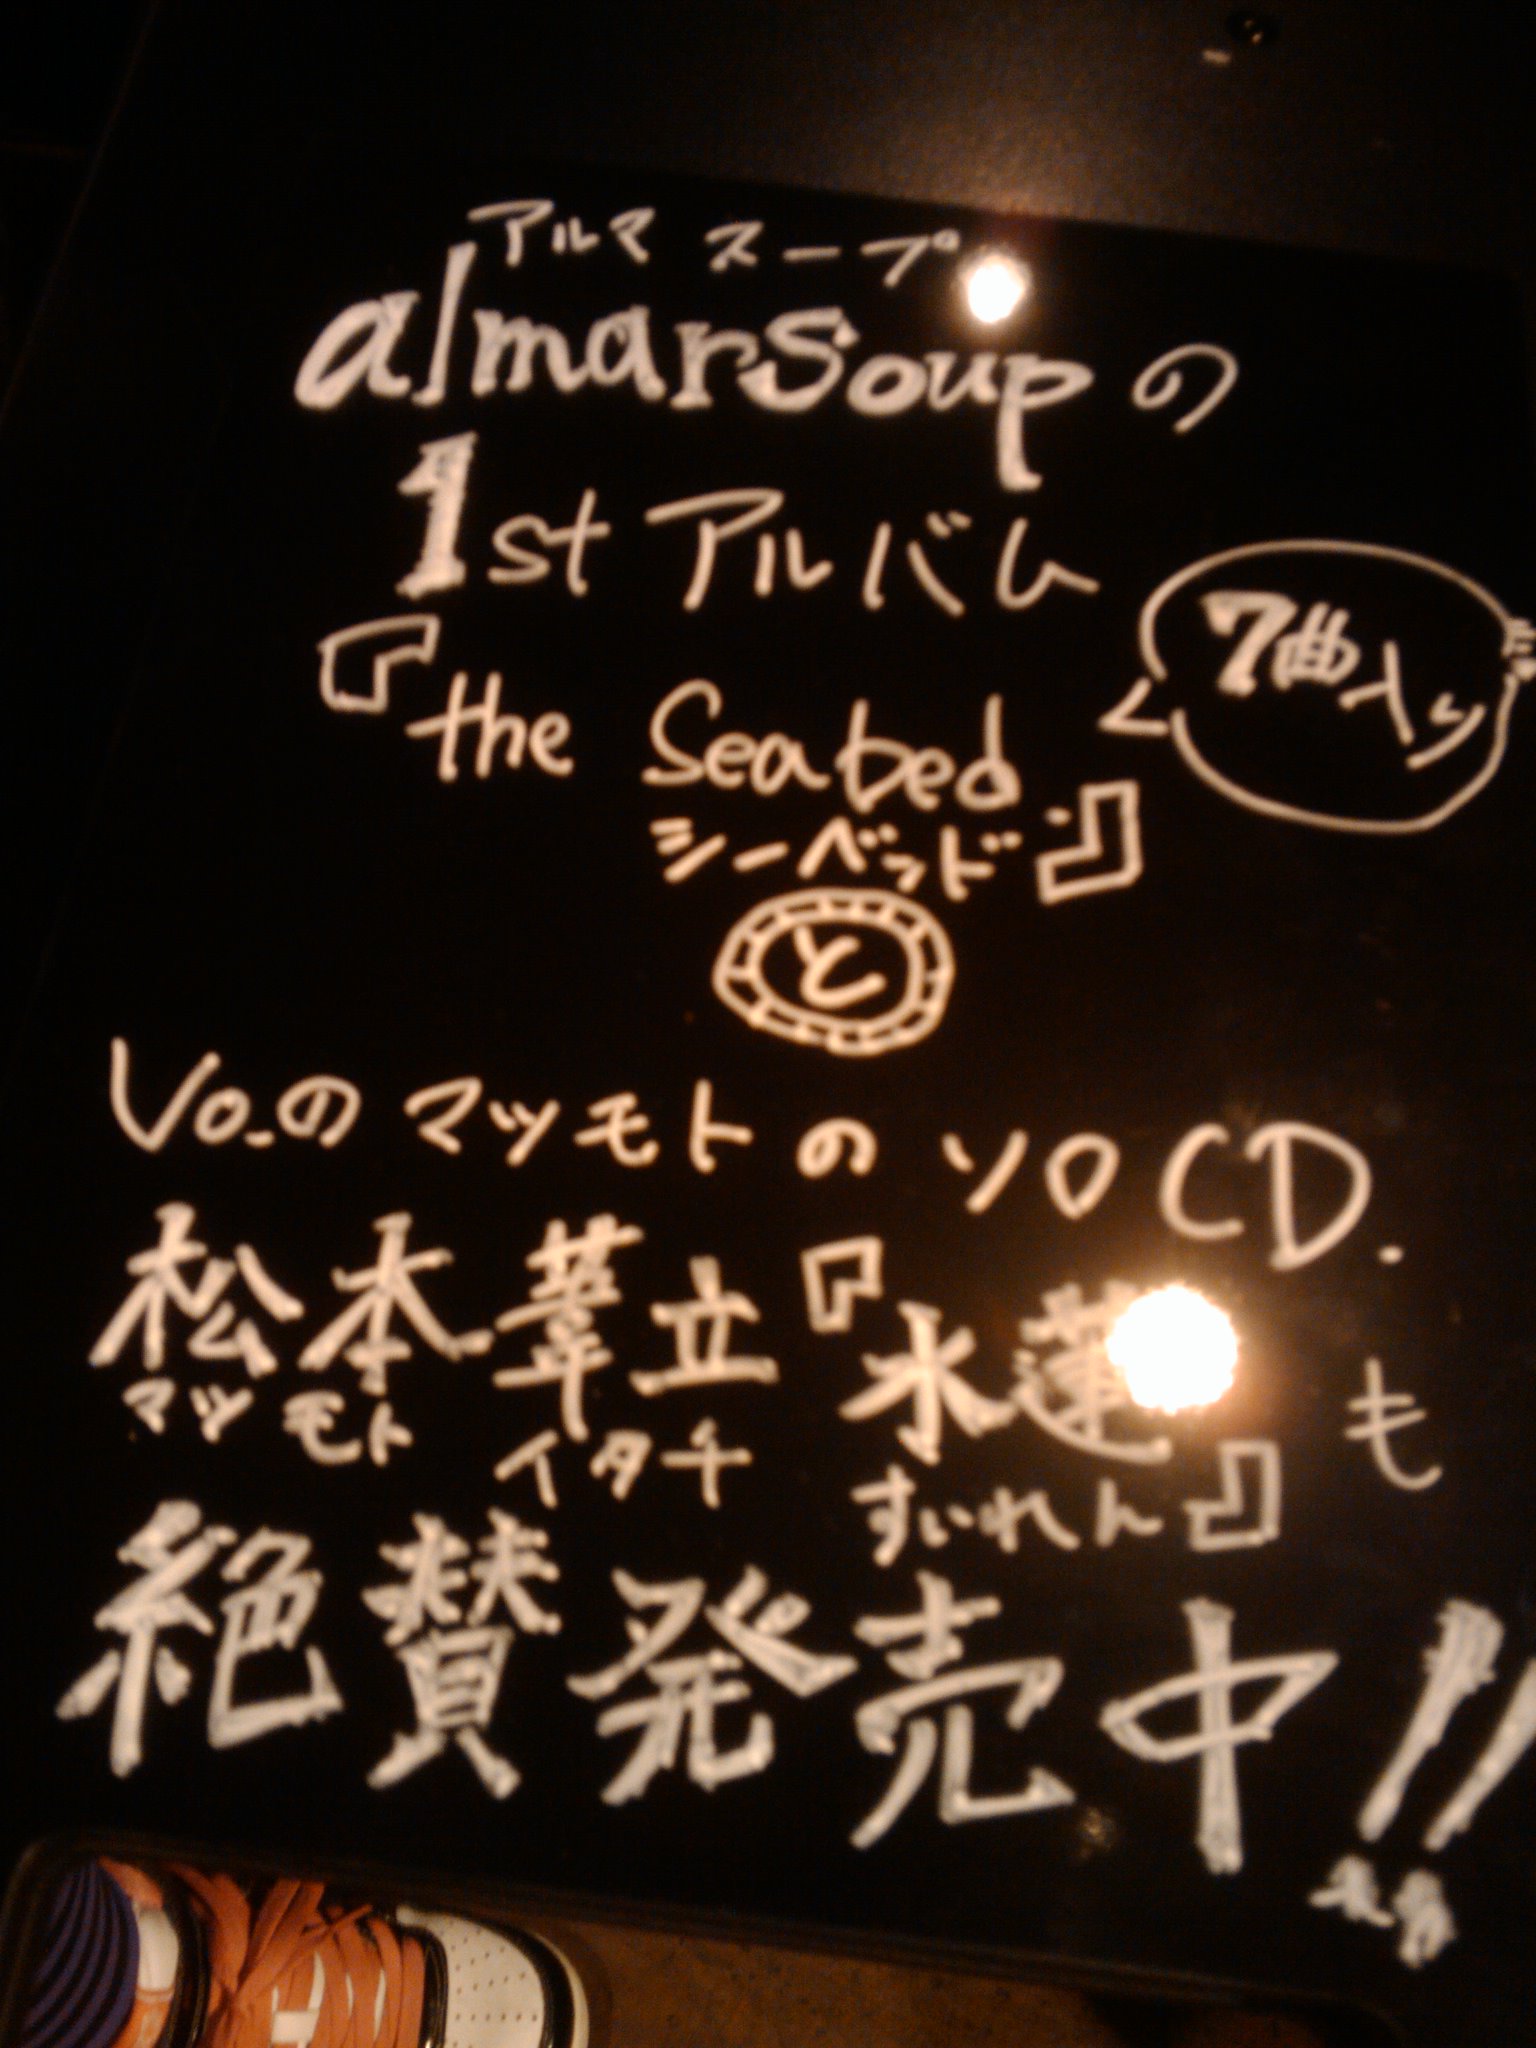 アルマ スープ
almarsoupの
1stアルバム
7曲入り
『the Seabed』
シーベッド
と
Vo.のマツモトのソロCD.
松本葦立『水蓮』も
マツモト イタチ すいれん
絶賛発売中!!